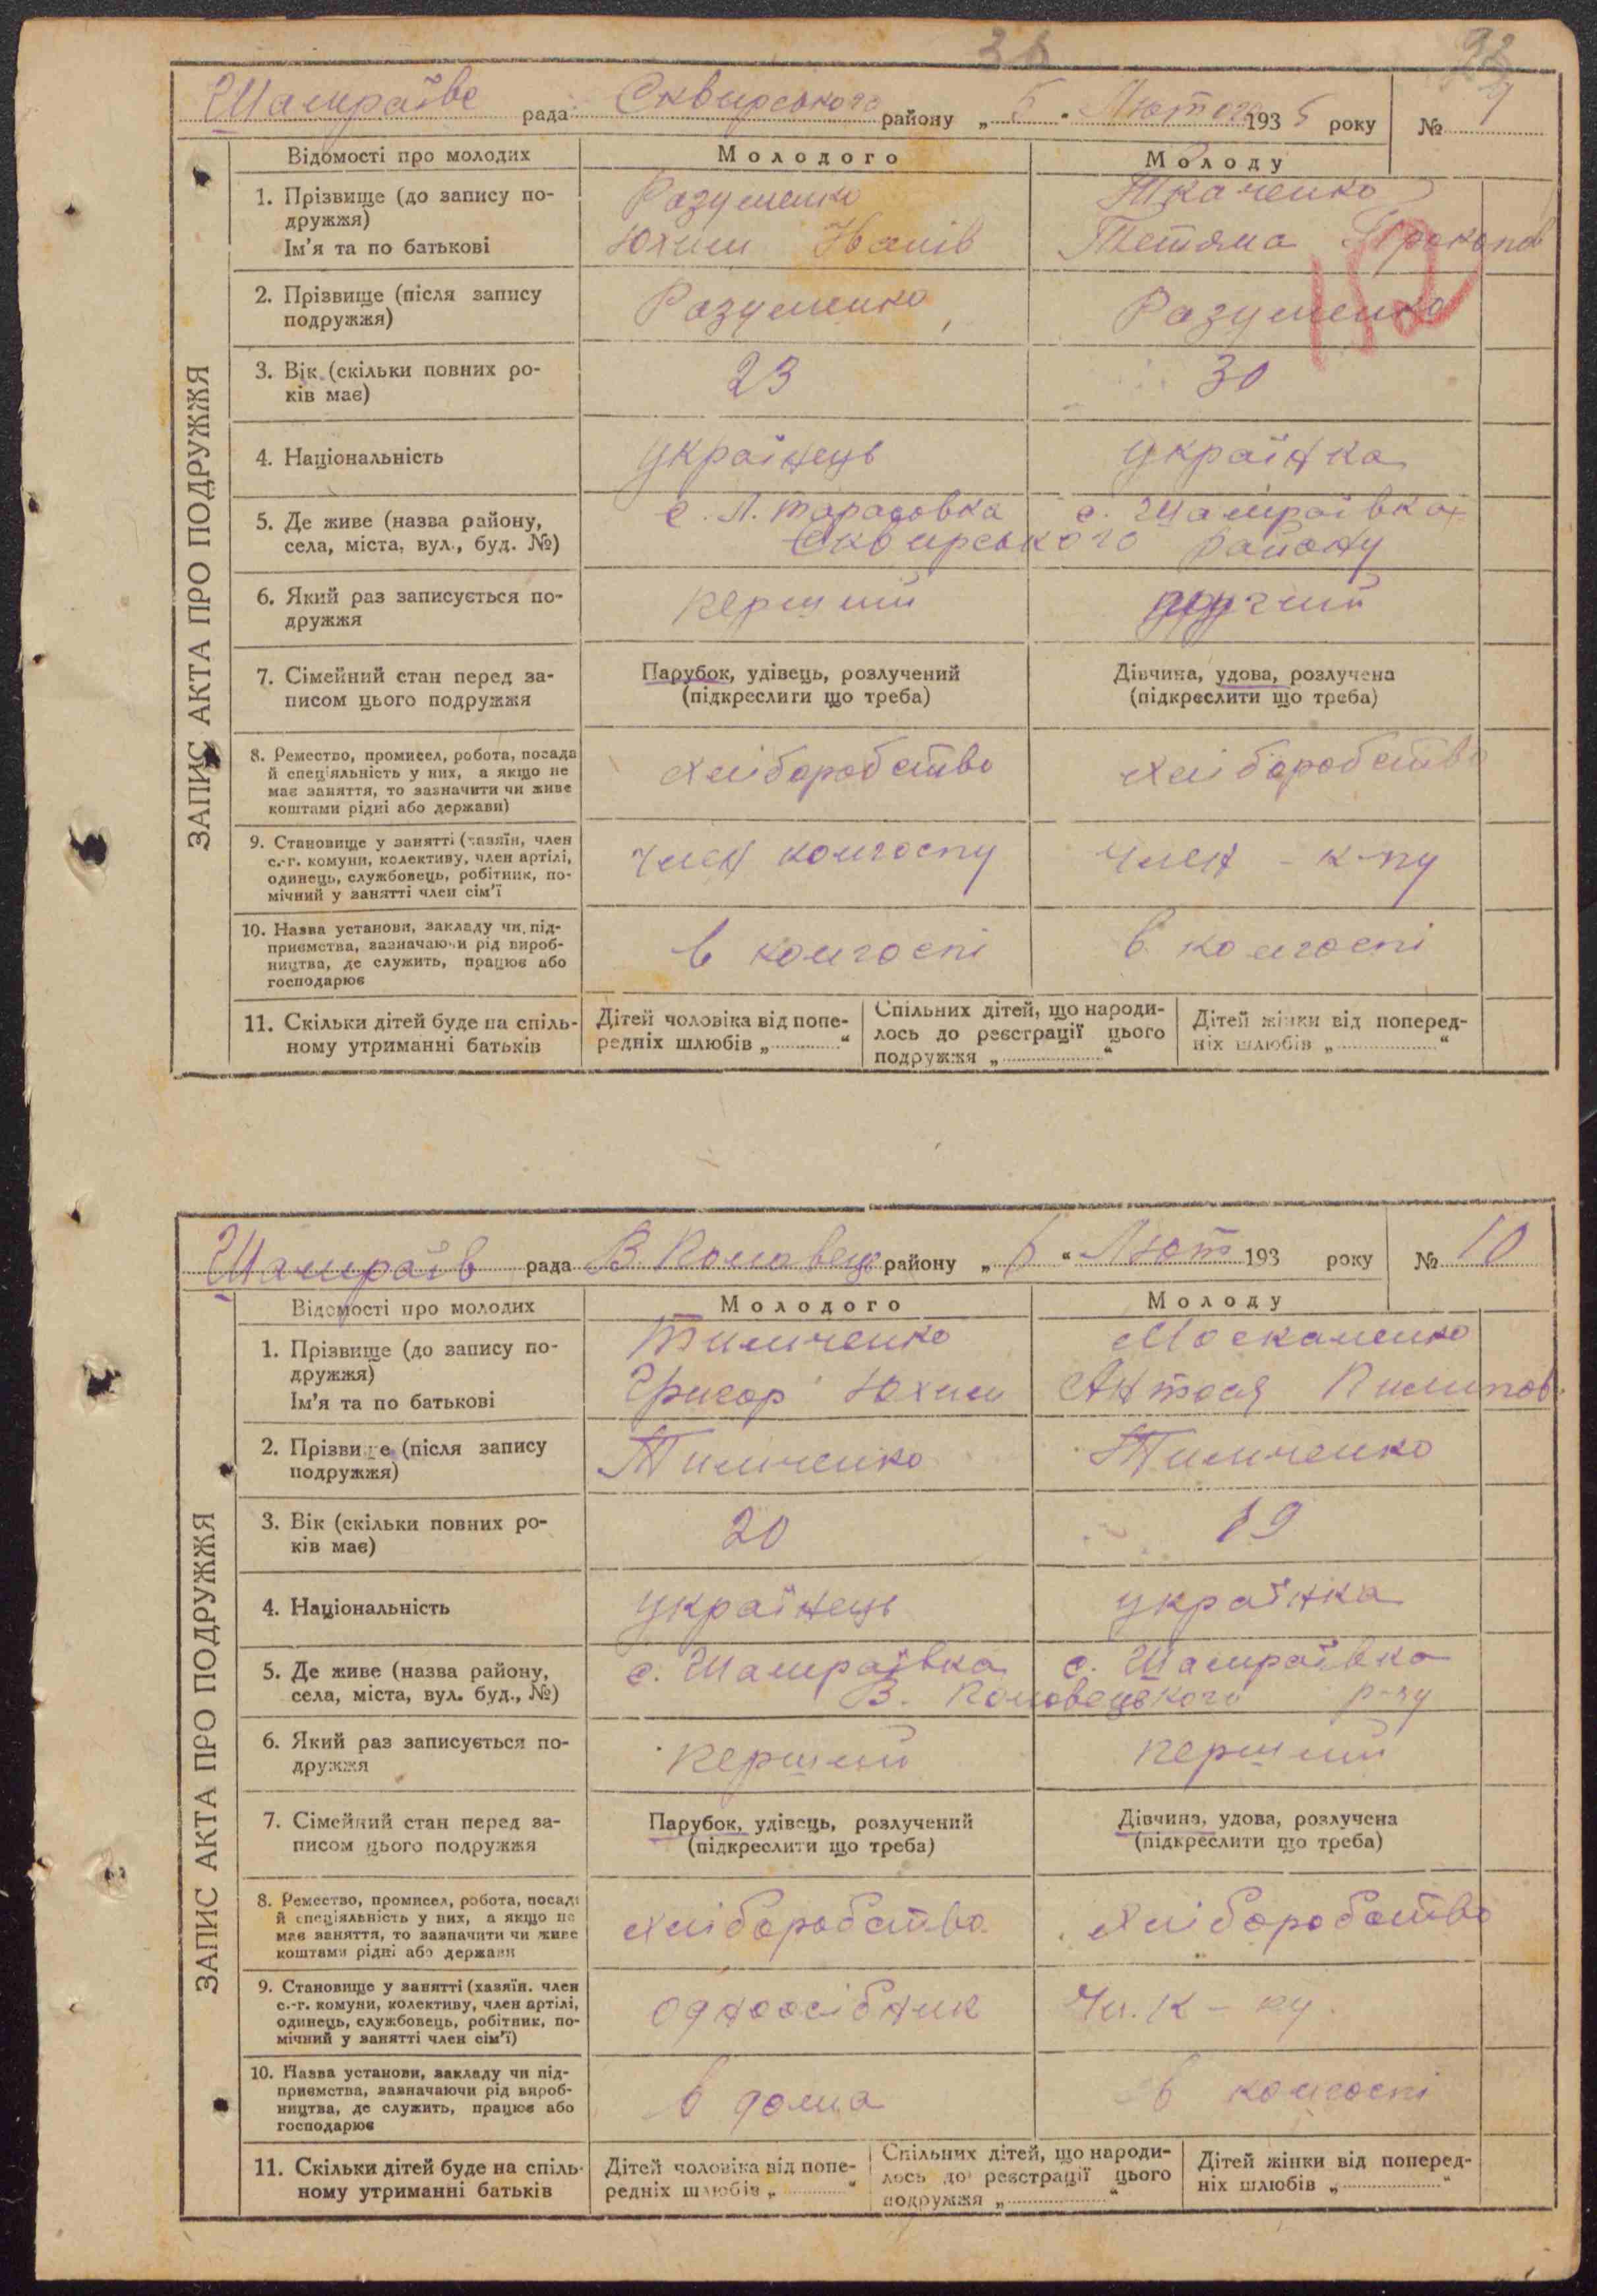 36
Шамраївс рада Сквирського району „ 6 " Лютого 1935 року № 9
Відомості про молодих Молодого Молоду
1. Прізвище (до запису по- Разуменко Ткаченко
дружжя)
Ім'я та по батькові Юхим Іванів Тетяма Прокопов
2. Прізвище (після запису Разуменко Разуменко
подружжя)
3. Вік (скільки повних ро- 23 30
ків має)
4. Національність українець українка
5. Де живе (назва району, с. Л. тарасовка с. Шамраївка
села, міста, вул., буд. №) Сквирського району
6. Який раз записується по- перший другий
дружжя
7. Сімейний стан перед за- Парубок, удівець, розлучений Дівчина, удова, розлучена
писом цього подружжя (підкреслити що треба) (підкреслити що треба)
8. Ремество, промисел, робота, посада хліборобство хліборобство
й спеціяльність у них, а якщо не
має заняття, то зазначити чи живе
коштами рідні або держави)
9. Становище у занятті (хазяїн, член член колгоспу член - к-пу
с.-г. комуни, колективу, член артілі,
одинець, службовець, робітник, по-
мічний у занятті член сім'ї
10. Назва установи, закладу чи під- в колгоспі в колгоспі
приємства, зазначаючи рід вироб-
ництва, де служить, працює або
господарює
11. Скільки дітей буде на спіль- Дітей чоловіка від попе- Спільних дітей, що народи- Дітей жінки від поперед-
ному утриманні батьків редніх шлюбів „ " лось до реєстрації цього ніх шлюбів „ "
подружжя „ "
ЗАПИС АКТА ПРО ПОДРУЖЖЯ
Шамраїв рада В. Половец району „ 6 " Лют 193 року № 10
Відомості про молодих Молодого Молоду
1. Прізвище (до запису по- Тимченко Москаленко
дружжя)
Ім'я та по батькові Григор Юхим Антося Пилипов
2. Прізвище (після запису Тимченко Тимченко
подружжя)
3. Вік (скільки повних ро- 20 19
ків має)
4. Національність українець українка
5. Де живе (назва району, с. Шамраївка с. Шамраївка
села, міста, вул. буд., №) В. Половецького р-ну
6. Який раз записується по- перший перший
дружжя
7. Сімейний стан перед за- Парубок, удівець, розлучений Дівчина, удова, розлучена
писом цього подружжя (підкреслити що треба) (підкреслити що треба)
8. Ремество, промисел, робота, посада хліборобство хліборобство
й спеціяльність у них, а якщо не
має заняття, то зазначити чи живе
коштами рідні або держави
9. Становище у занятті (хазяїн. член одноосібник Чл. к - пу
с.-г. комуни, колективу, член артілі,
одинець, службовець, робітник, по-
мічний у занятті член сім'ї)
10. Назва установи, закладу чи під- в дома в колгоспі
приємства, зазначаючи рід вироб-
ництва, де служить, працює або
господарює
11. Скільки дітей буде на спіль- Дітей чоловіка від попе- Спільних дітей, що народи- Дітей жінки від поперед-
ному утриманні батьків редніх шлюбів „ " лось до реєстрації цього ніх шлюбів „ "
подружжя „ "
ЗАПИС АКТА ПРО ПОДРУЖЖЯ